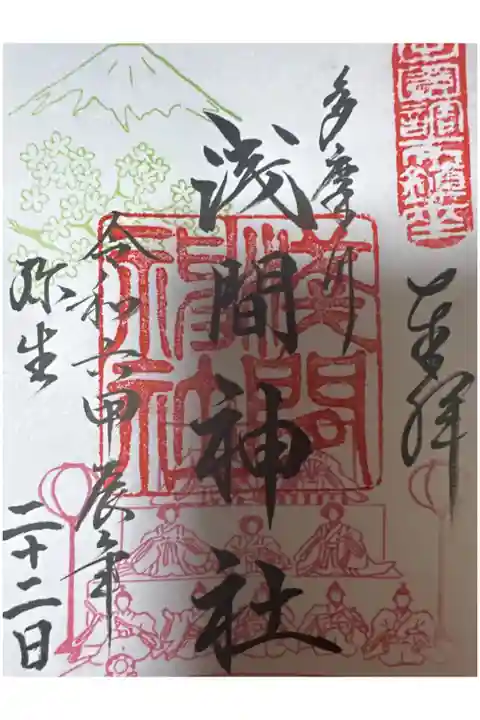 奉拝
多摩川
浅間神社
令和六甲辰年
弥生
二十二日
浅間神社